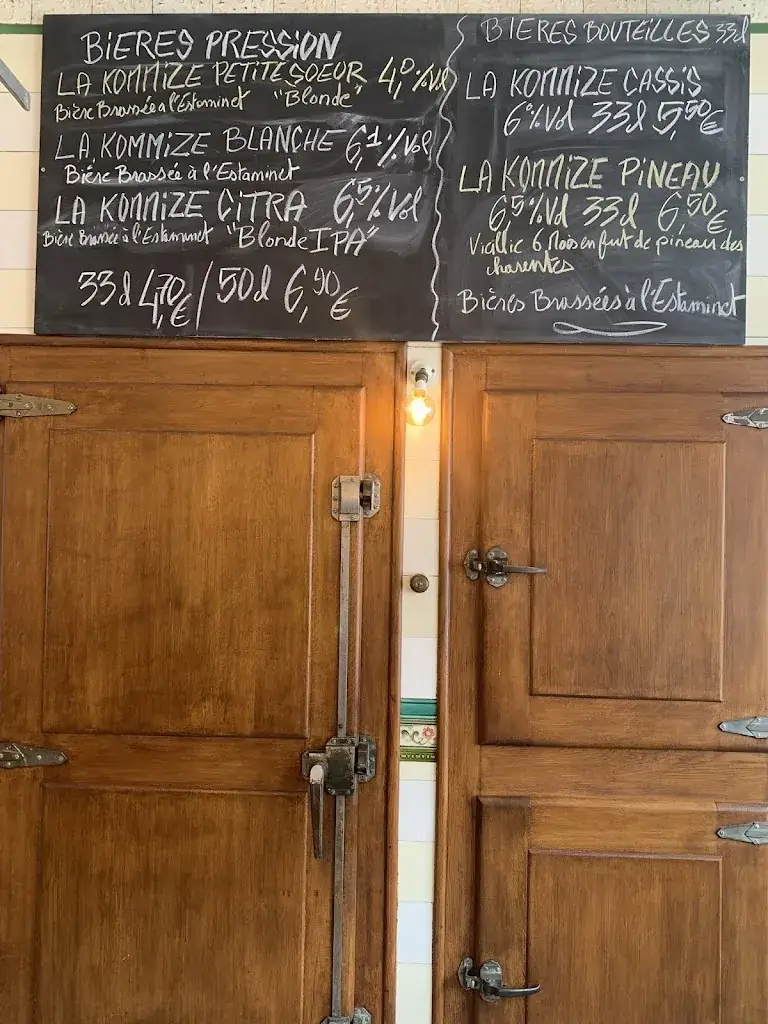 BIERES PRESSION
LA KOMMIZE PETITE SOEUR 4,0%Vol
Bière Brassée à l'Estaminet "Blonde"
LA KOMMIZE BLANCHE 6,1%Vol
Biére Brassée à l'Estaminet
LA KOMMIZE CITRA 6,5%Vol
Bière Brassée à l'Estaminet "Blonde IPA"
33cl 4,70€/50cl 6,90€
BIERES BOUTEILLES 33cl
LA KOMMIZE CASSIS
6%Vol 33cl 5,50€
LA KOMMIZE PINEAU
6,5%Vol 33cl 6,50€
Viellie 6 Mois en fut de pineau des
charentes
Bières Brassées à l'Estaminet